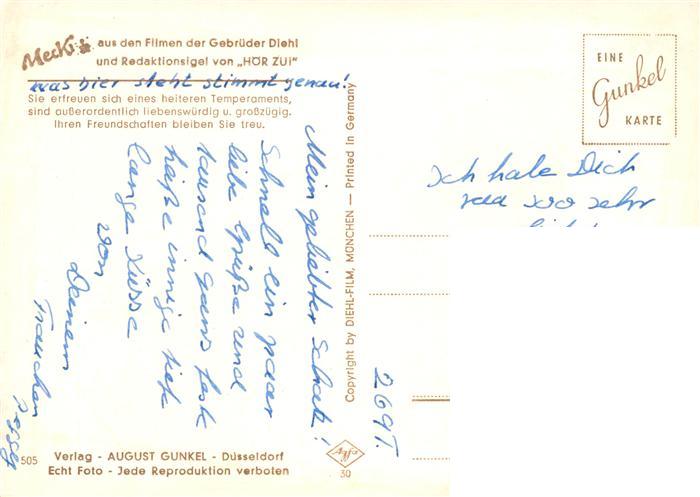 Mecki aus den Filmen der Gebrüder Diehl
und Redaktionsigel von „HÖR ZU!"
was hier steht stimmt genau!
Sie erfreuen sich eines heiteren Temperaments,
sind außerordentlich liebenswürdig u. großzügig.
Ihren Freundschaften bleiben Sie treu.
Mein geliebter Schatz!
Schnell ein paar
liebe Grüße und
tausend ganz feste
heiße innige tiefe
lange Küsse
von
Deinem
Frauchen
Copyright by DIEHL-FILM, MÜNCHEN — Printed in Germany
EINE
Gunkel
KARTE
Ich habe Dich
soo sehr
269T.
505
Verlag - AUGUST GUNKEL - Düsseldorf
Echt Foto - Jede Reproduktion verboten
Agfa
30